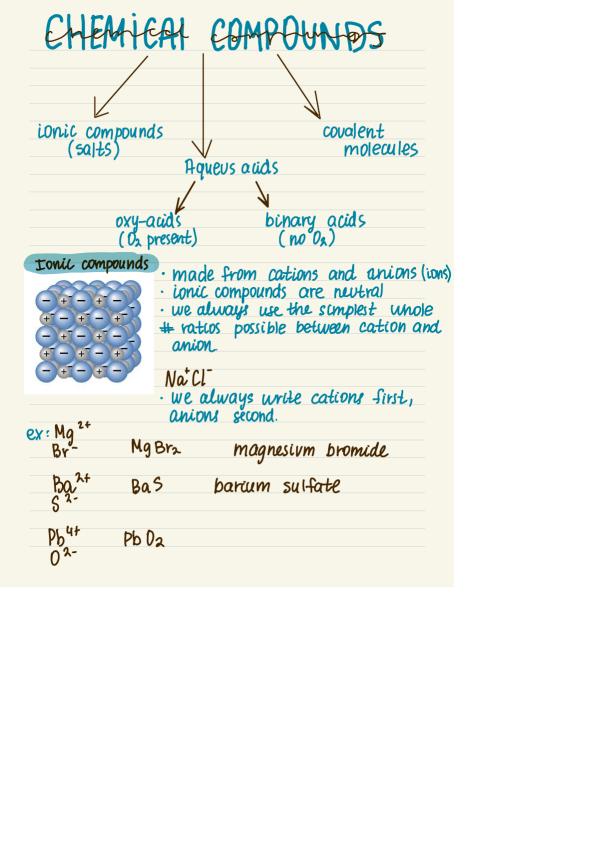 CHEMICAL COMPOUNDS
chemical compounds
ionic compounds
(salts)
covalent
molecules
Aqueus acids
oxy-acids
(O₂ present)
binary acids
(no O₂)
Ionic compounds
· made from cations and anions (ions)
· ionic compounds are neutral
· we always use the simplest whole
# ratios possible between cation and
anion
Na⁺Cl⁻
· we always write cations first,
anions second.
ex: Mg²⁺
Br⁻ MgBr₂ magnesium bromide
Ba²⁺ BaS barium sulfate
S²⁻
Pb⁴⁺ PbO₂
O²⁻